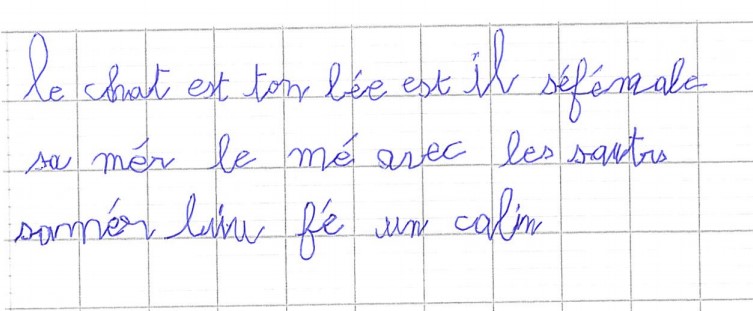 le chat est ton lée est il séfémale
sa mér le mé avec les sautrs
samér luiu fé un calin